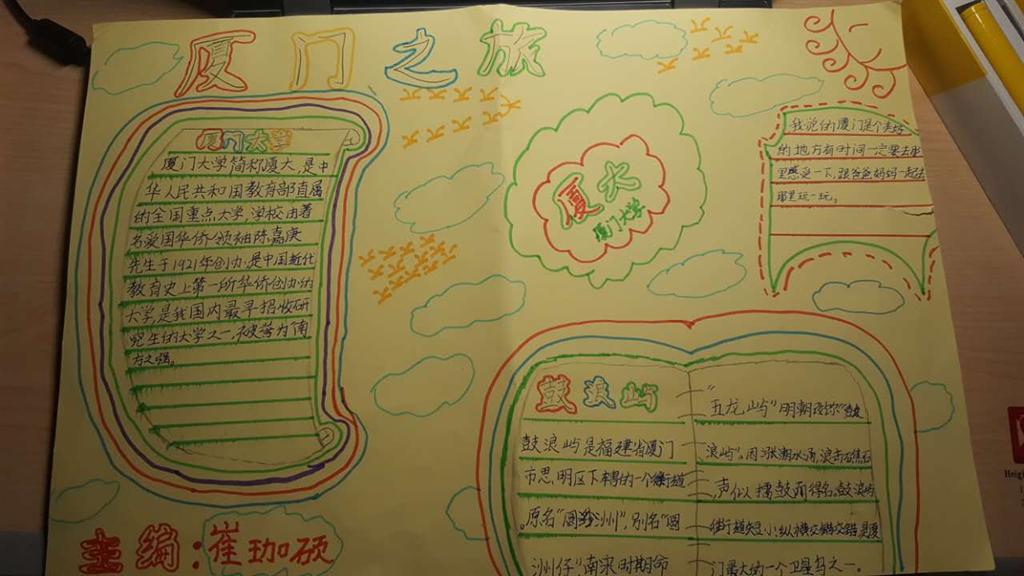 厦门之旅
厦门大学
厦门大学简称厦大,是中
华人民共和国教育部直属
的全国重点大学,学校由著
名爱国华侨领袖陈嘉庚
先生于1921年创办,是中国近代
教育史上第一所华侨创办的
大学是我国内最早招收研
究生的大学之一,被誉为"南
方之强。
厦大
厦门大学
我觉的厦门是个美好
的地方有时间一定要去那
里感受一下,跟爸爸妈妈一起去
那里玩一玩。
鼓浪屿
鼓浪屿是福建省厦门
市思明区下辖的一个街道
原名"圆沙洲",别名"圆
洲仔",南宋时期命
"五龙屿"明朝改称"鼓
浪屿",因涨潮水涌,浪击礁石
,声似擂鼓而得名,鼓浪屿
街道短小,纵横交错,是厦
门最大的一个卫星岛之一。
主编:崔珈硕